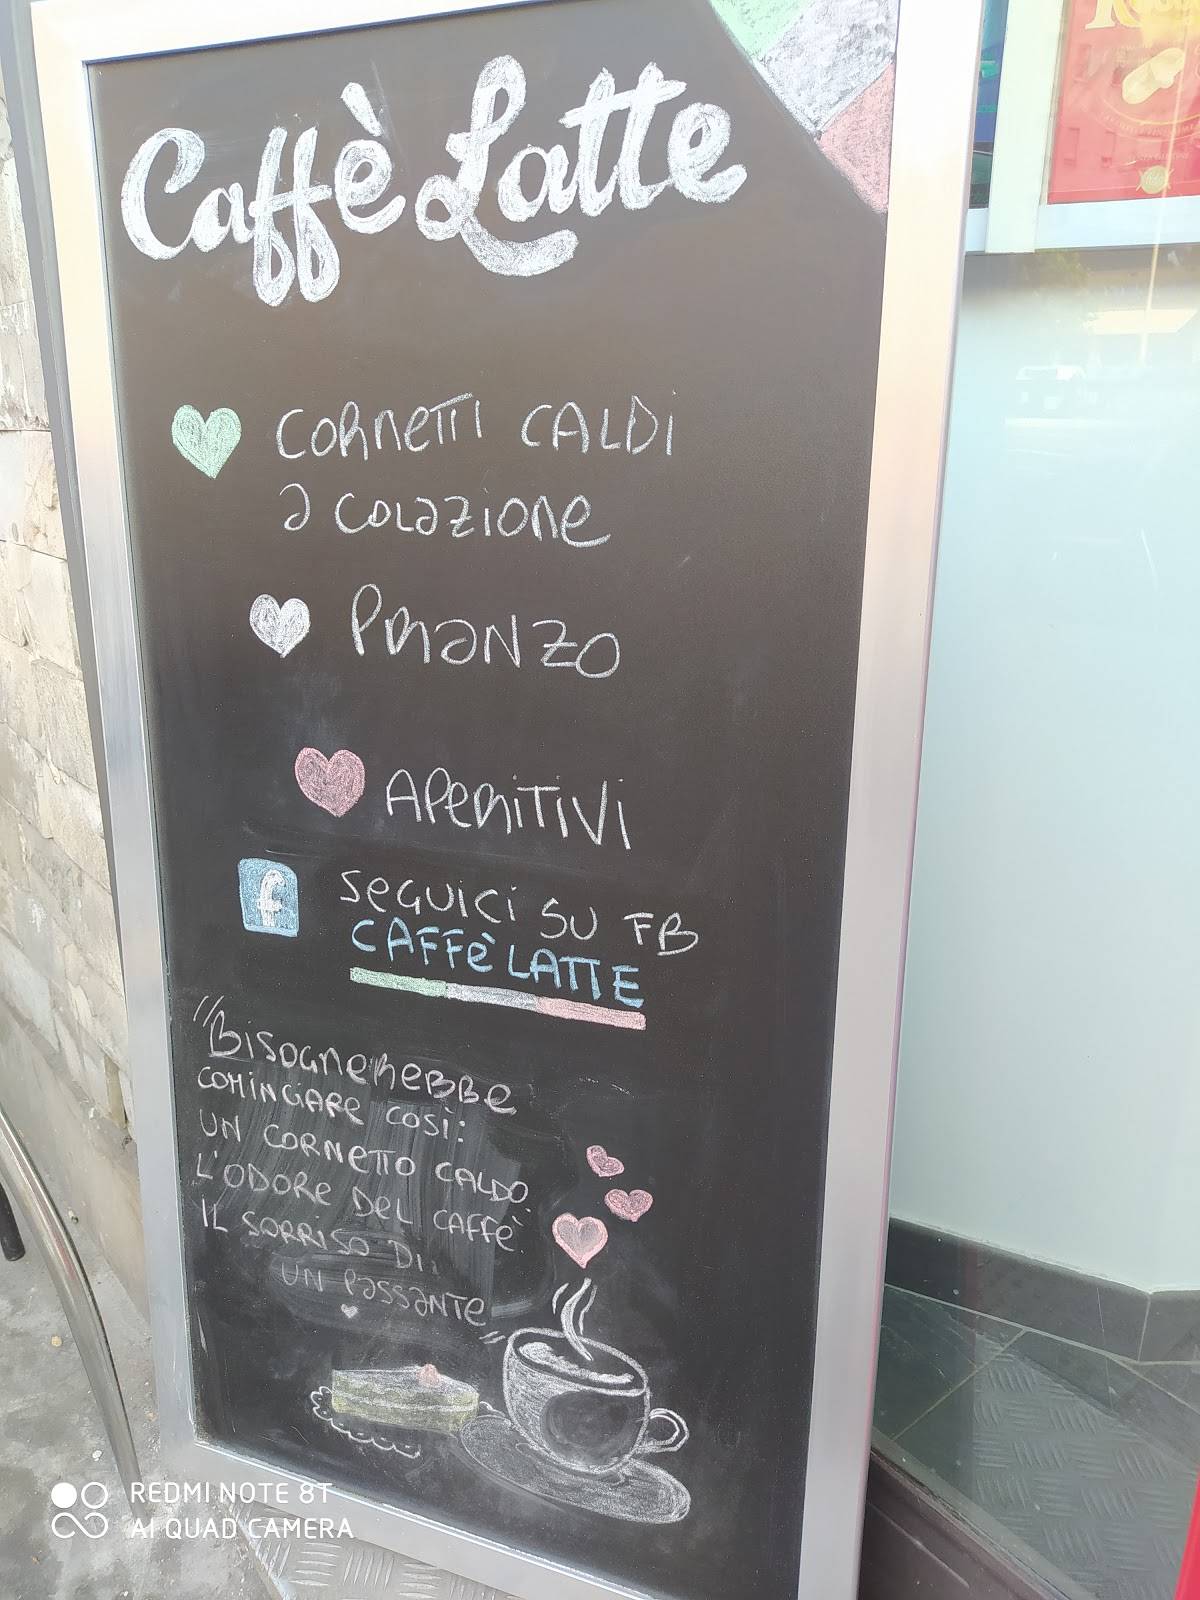 Caffè Latte
CORNETTI CALDI
a COLAZIONE
PRANZO
APERITIVI
f
SEGUICI SU FB
CAFFÈ LATTE
"BISOGNEREBBE
COMINCIARE COSÌ:
UN CORNETTO CALDO
L'ODORE DEL CAFFÈ
IL SORRISO DI
UN PASSANTE"
REDMI NOTE 8T
AI QUAD CAMERA